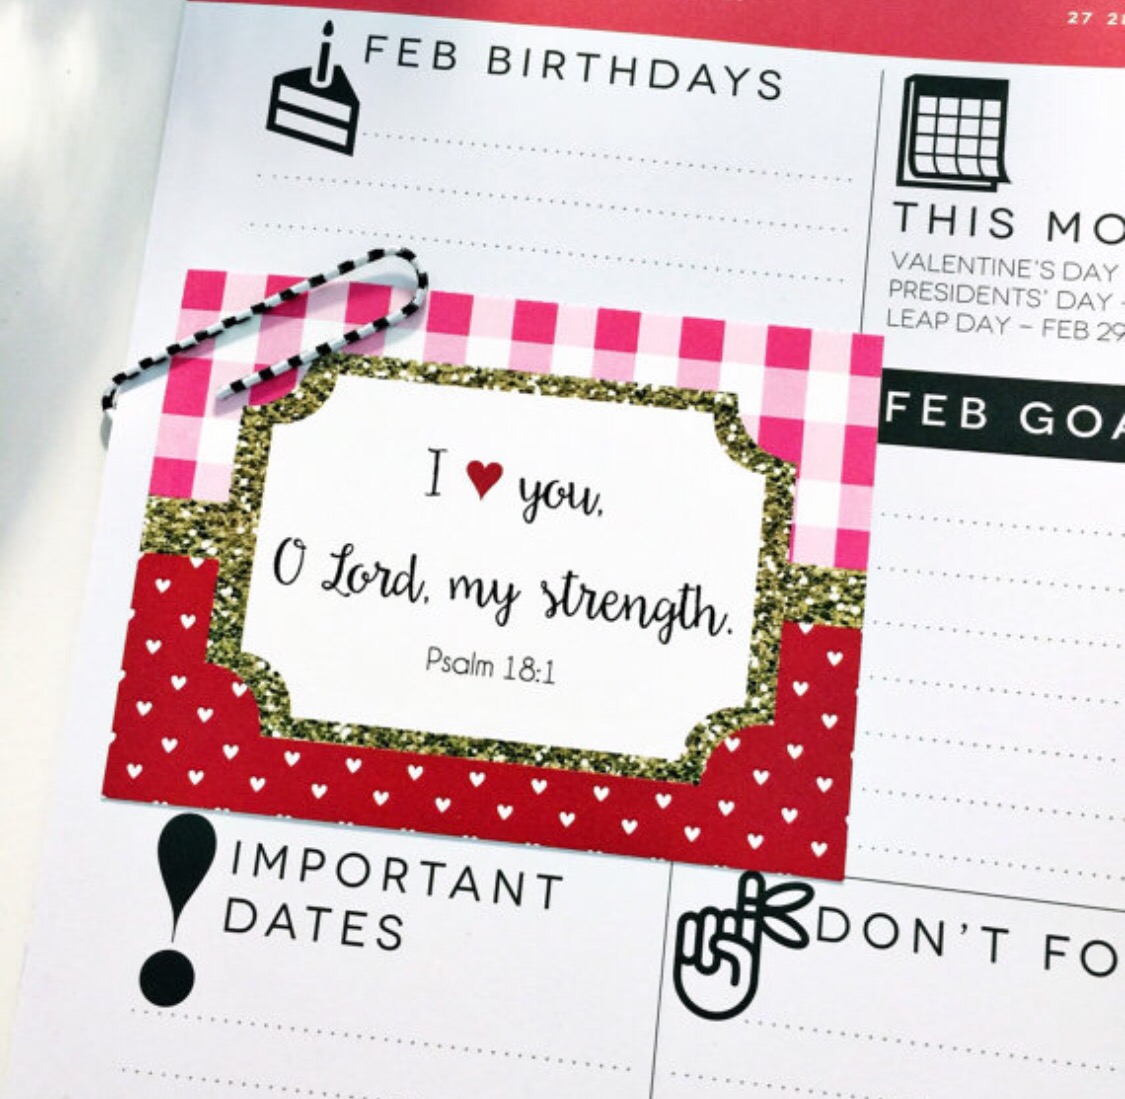 27
FEB BIRTHDAYS
THIS
VALENTINE'S DAY
PRESIDENTS' DAY -
LEAP DAY – FEB 29
FEB
I ♥ you,
O Lord, my strength.
Psalm 18:1
IMPORTANT
DATES
DON'T